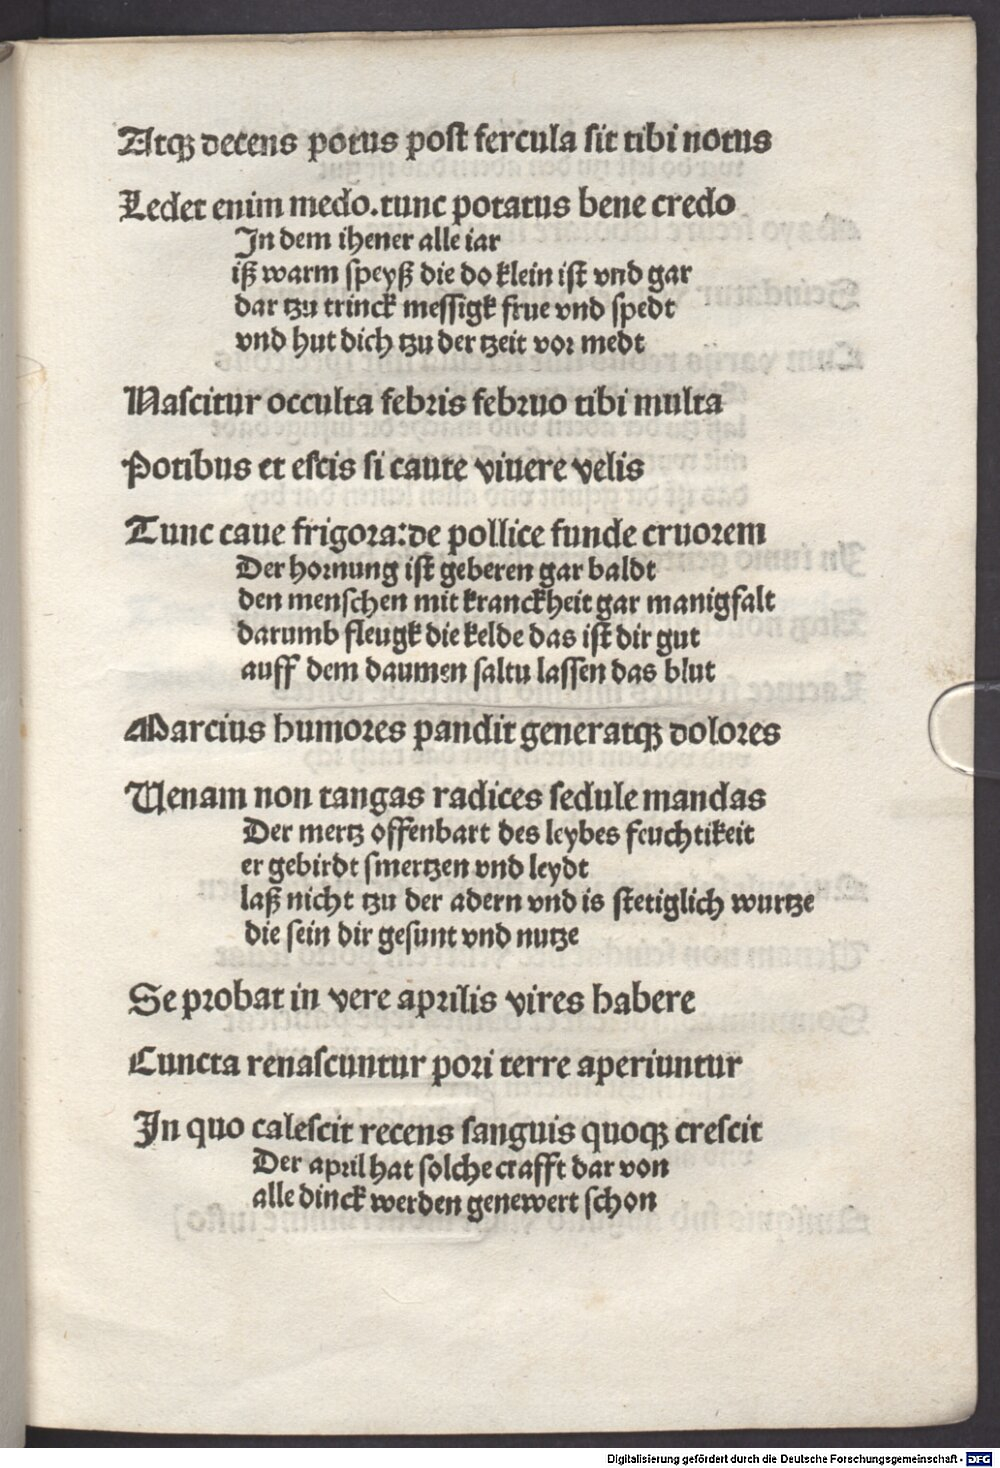 Atqꝫ decens potus post fercula sit tibi notus
Ledet enim medo.tunc potatus bene credo
In dem ihener alle iar
iß warm speyß die do klein ist vnd gar
dar tzu trinck messigk frue vnd spedt
vnd hut dich tzu der tzeit vor medt
Nascitur occulta febris februo tibi multa
Potibus et escis si caute viuere velis
Tunc caue frigora:de pollice funde cruorem
Der hornung ist geberen gar baldt
den menschen mit kranckheit gar manigfalt
darumb fleugk die kelde das ist dir gut
auff dem daumen saltu lassen das blut
Marcius humores pandit generatqꝫ dolores
Uenam non tangas radices sedule mandas
Der mertz offenbart des leybes feuchtikeit
er gebirdt smertzen vnd leydt
laß nicht tzu der adern vnd is stetiglich wurtze
die sein dir gesunt vnd nutze
Se probat in vere aprilis vires habere
Cuncta renascuntur pori terre aperiuntur
In quo calescit recens sanguis quoqꝫ crescit
Der april hat solche crafft dar von
alle dinck werden genewert schon
Digitalisierung gefördert durch die Deutsche Forschungsgemeinschaft - DFG